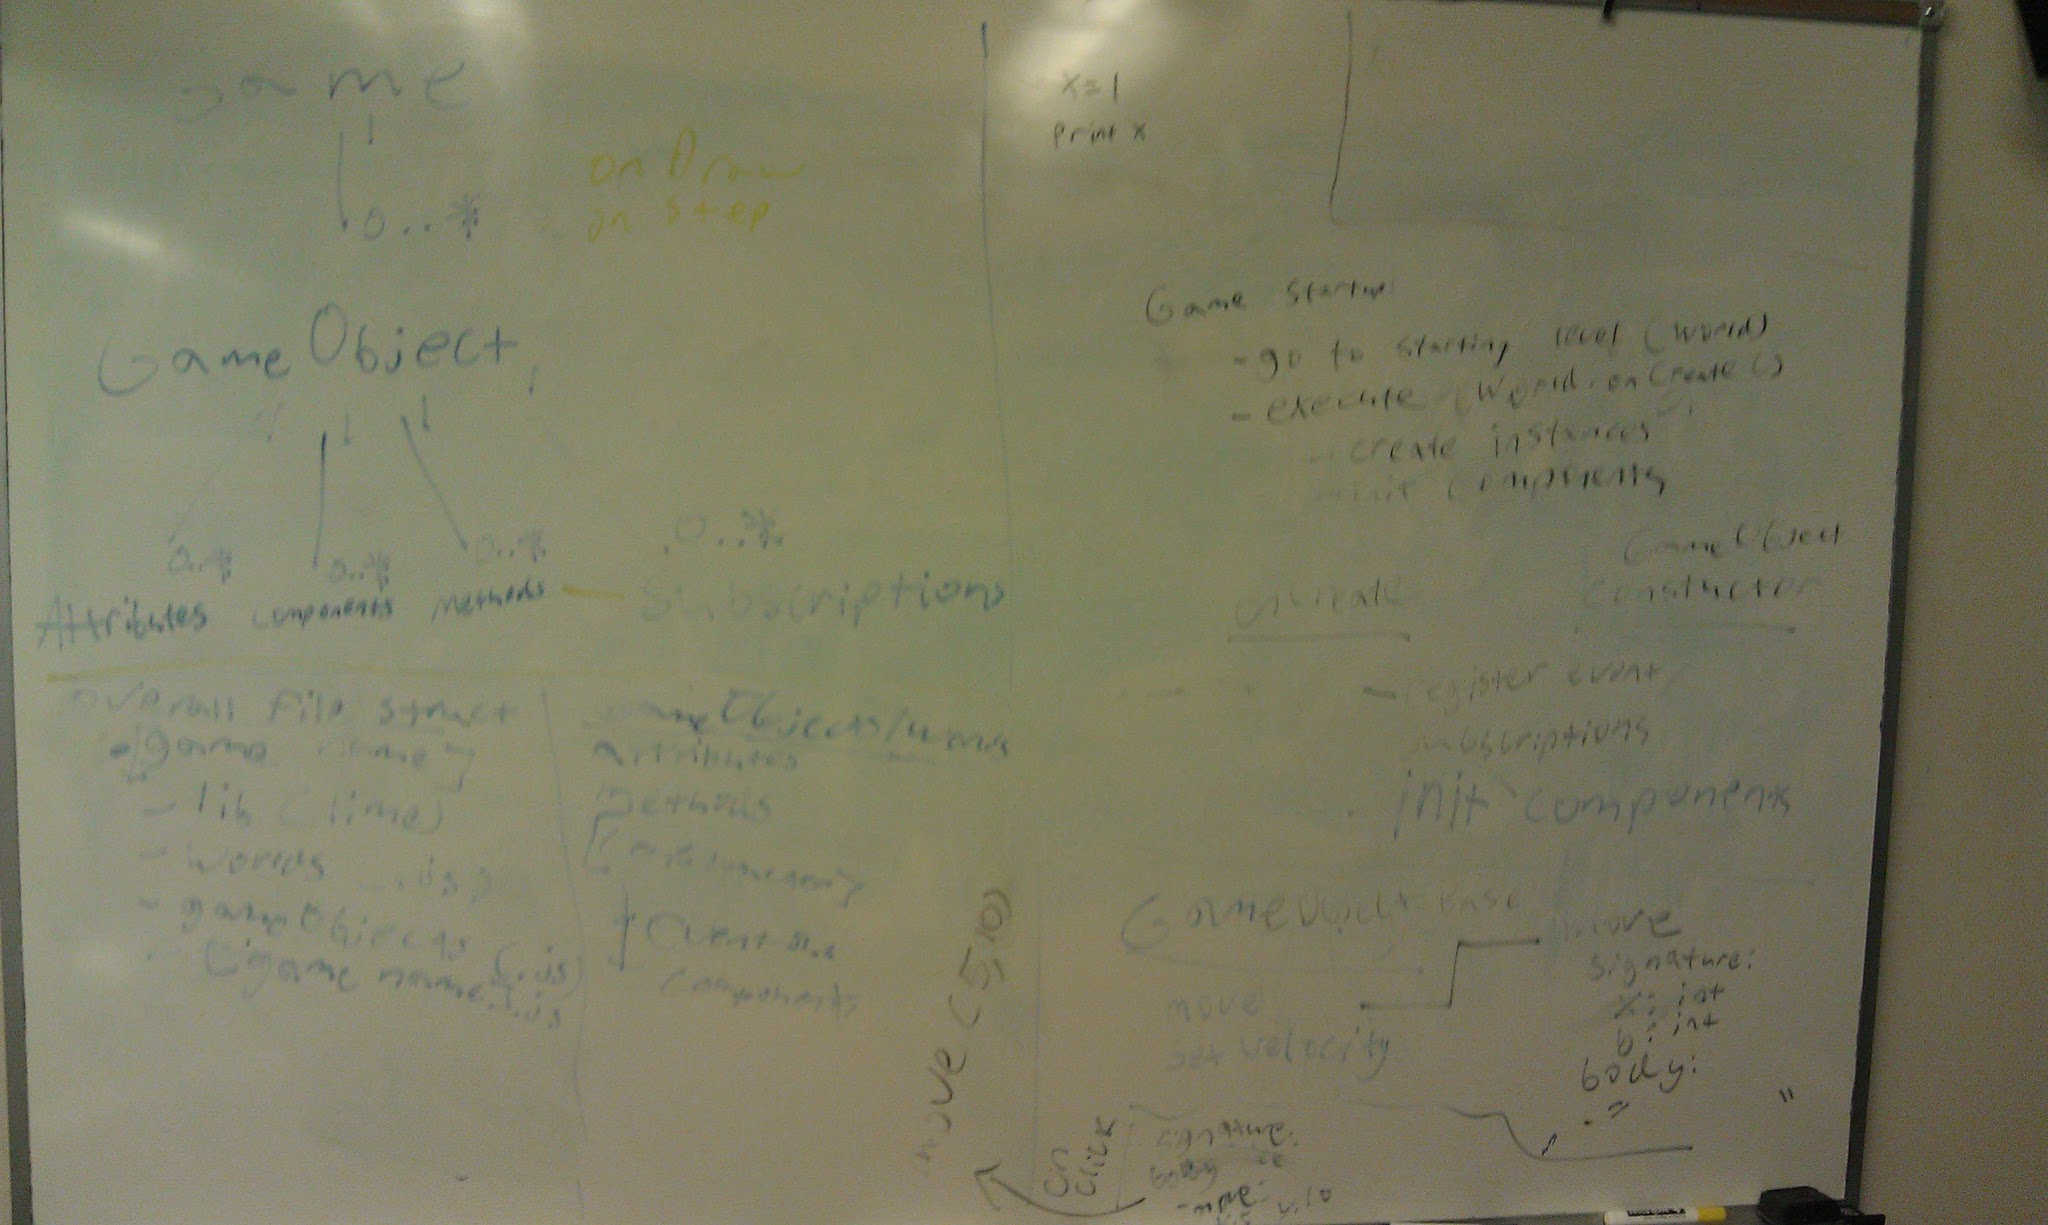 game
0..*
on Draw
on Step
GameObject
0..* 0..* 0..*
Attributes components Methods
0..*
Subscriptions
overall file struct
- [game name]
- lib (lime)
- worlds
- gameObjects (.js)
[game name].js
GameObjects/worlds
attributes
methods
components
move (5,10)
x=1
print x
Game Startup:
- go to starting level (World)
- execute World.onCreate()
- create instances
- init components
onCreate
GameObject
constuctor
- register event
subscriptions
- init components
GameObject base
move
set velocity
move
signature:
x: int
b: int
body:
- "
"
on
click
signature:
body
- move: